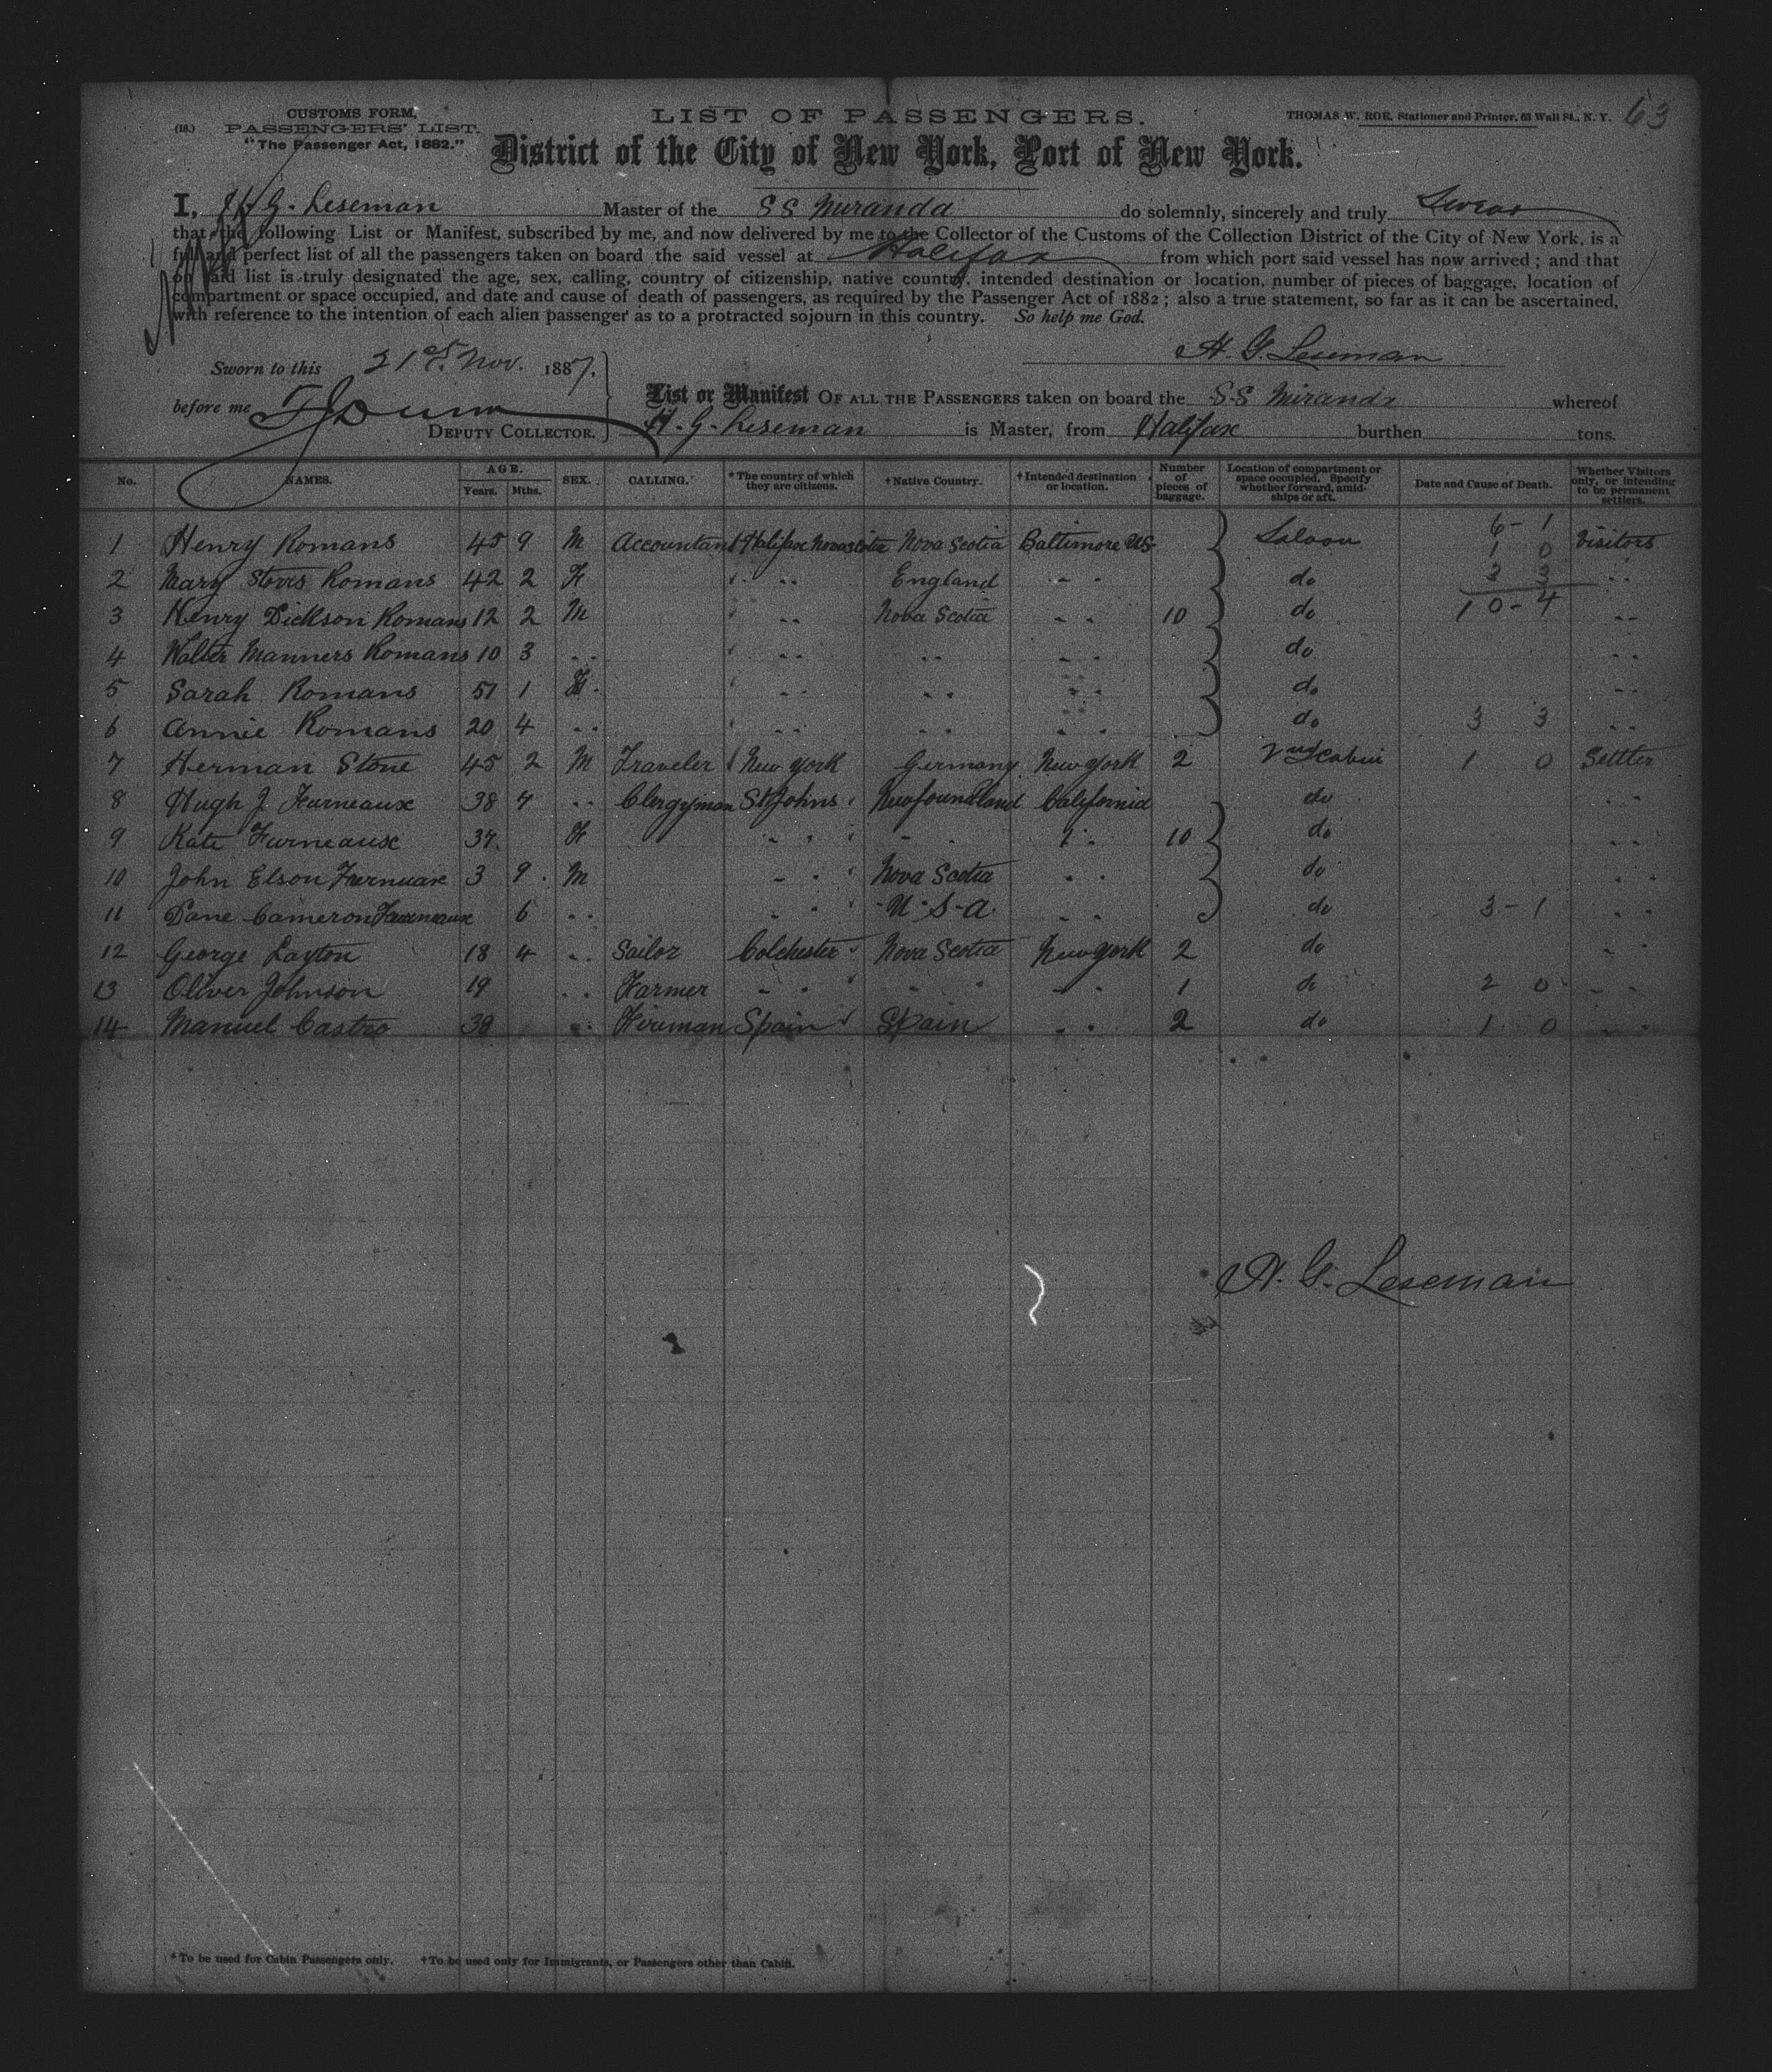 CUSTOMS FORM,
(18.) PASSENGERS' LIST.
"The Passenger Act, 1882."
LIST OF PASSENGERS.
THOMAS W. ROE, Stationer and Printer, 63 Wall St., N. Y.
63
District of the City of New York, Port of New York.
I, H. G. Leseman Master of the S S Miranda do solemnly, sincerely and truly Swear
that the following List or Manifest, subscribed by me, and now delivered by me to the Collector of the Customs of the Collection District of the City of New York, is a
full and perfect list of all the passengers taken on board the said vessel at Halifax from which port said vessel has now arrived; and that
on said list is truly designated the age, sex, calling, country of citizenship, native country, intended destination or location, number of pieces of baggage, location of
compartment or space occupied, and date and cause of death of passengers, as required by the Passenger Act of 1882; also a true statement, so far as it can be ascertained,
with reference to the intention of each alien passenger as to a protracted sojourn in this country. So help me God.
H. G. Leseman
Sworn to this 21st Nov. 1887.
before me
DEPUTY COLLECTOR.
List or Manifest OF ALL THE PASSENGERS taken on board the S.S Miranda whereof
H. G. Leseman is Master, from Halifax burthen tons.
No. NAMES. AGE. Years. Mths. SEX. CALLING. *The country of which they are citizens. †Native Country. †Intended destination or location. Number of pieces of baggage. Location of compartment or space occupied. Specify whether forward, amidships or aft. Date and Cause of Death. Whether Visitors only, or intending to be permanent settlers.
6 - 1
1 Henry Romans 45 9 M Accountant Halifax Nova Scotia Nova Scotia Baltimore US Saloon 1 0 Visitors
2 Mary Romans 42 2 F " " England " " do 3 3 " "
3 Henry Dickson Romans 12 2 M " " Nova Scotia " " 10 do 10 - 4 " "
4 Walter Manners Romans 10 3 " " " " " " " " do " "
5 Sarah Romans 51 1 F. " " " " " " do " "
6 Annie Romans 20 4 " " " " " " " " do 3 3 " "
7 Herman Stone 45 2 M Traveler New York Germany New York 2 2nd Cabin 1 0 Settler
8 Hugh J. Furneaux 38 4 " " Clergyman St Johns Newfoundland California do " "
9 Kate Furneaux 37 F " " " " " " 10 do " "
10 John Elson Furneaux 3 9 M " " Nova Scotia " " do " "
11 Cameron Furneaux 6 " " " " U.S.A. " " do 3 - 1 " "
12 George Layton 18 4 " " Sailor Colchester Nova Scotia New York 2 do " "
13 Oliver Johnson 19 " " Farmer " " " " " " 1 do 2 0 " "
14 Manuel Castro 38 " " Fireman Spain Spain " " 2 do 1 0 " "
H. G. Leseman
*To be used for Cabin Passengers only. †To be used only for Immigrants, or Passengers other than Cabin.